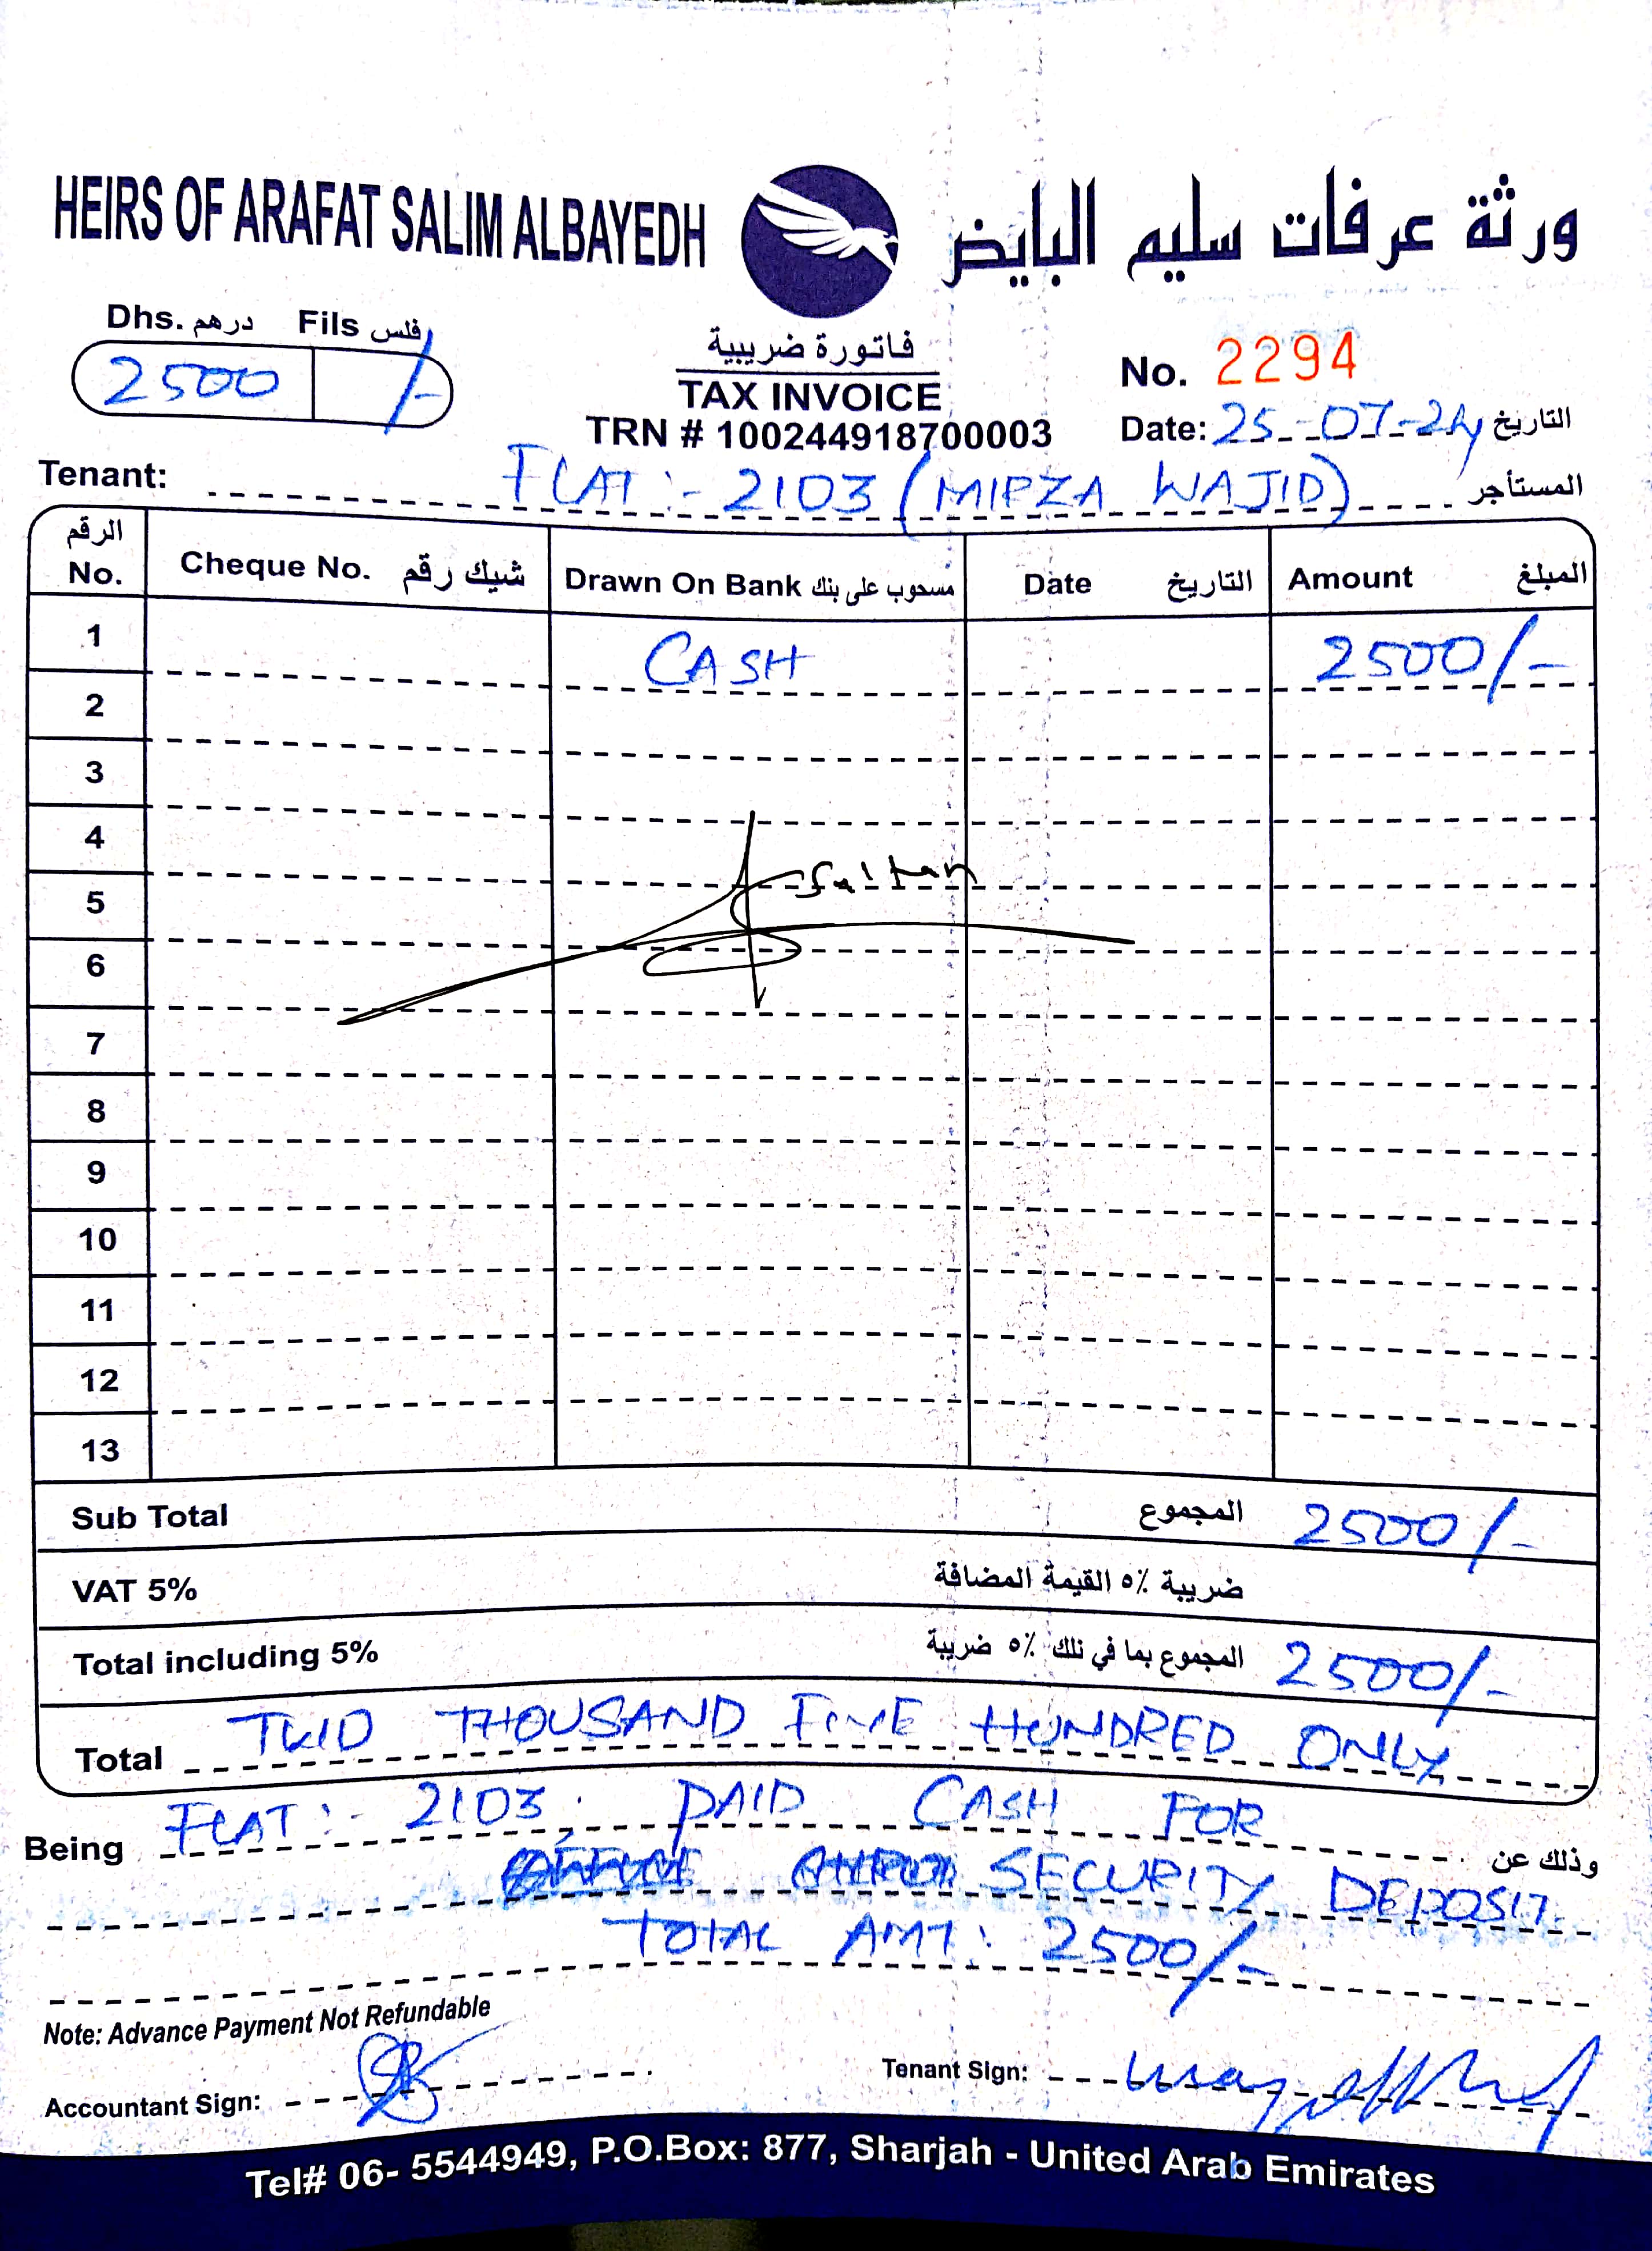 HEIRS OF ARAFAT SALIM ALBAYEDH ورثة عرفات سليم البايض
Dhs. درهم Fils فلس
2500 /-
فاتورة ضريبية
TAX INVOICE
TRN # 100244918700003
No. 2294
Date: 25-07-24 التاريخ
Tenant: FLAT :- 2103 (MIRZA WAJID) المستأجر
الرقم No. Cheque No. شيك رقم Drawn On Bank مسحوب على بنك Date التاريخ Amount المبلغ
1 CASH 2500/-
2
3
4
5 Sultan
6
7
8
9
10
11
12
13
Sub Total المجموع 2500/-
VAT 5% ضريبة ٥٪ القيمة المضافة
Total including 5% المجموع بما في ذلك ٥٪ ضريبة 2500/-
Total TWO THOUSAND FIVE HUNDRED ONLY
Being FLAT :- 2103. PAID CASH FOR وذلك عن
SECURITY DEPOSIT
TOTAL AMT: 2500/-
Note: Advance Payment Not Refundable
Accountant Sign: Tenant Sign:
Tel# 06- 5544949, P.O.Box: 877, Sharjah - United Arab Emirates